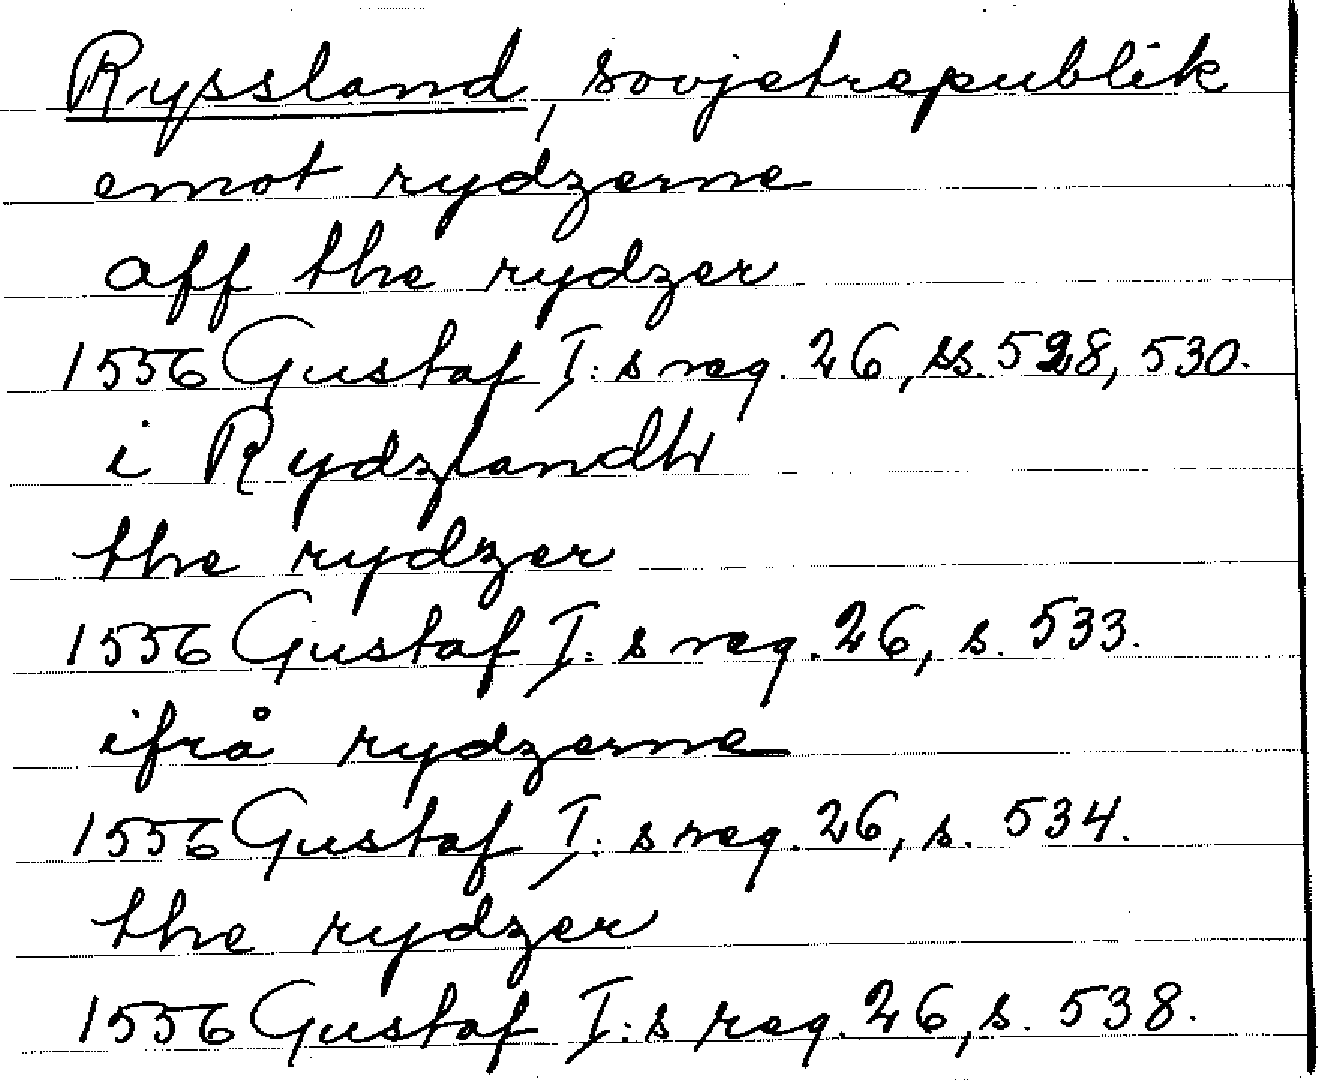 Ryssland, sovjetrepublik
emot rydzerne
aff the rydzer
1556 Gustaf I:s reg. 26, ss. 528, 530.
i Rydzlandh
the rydzer
1556 Gustaf I:s reg. 26, s. 533.
ifrå rydzerne
1556 Gustaf I:s reg. 26, s. 534.
the rydzer
1556 Gustaf I:s reg. 26, s. 538.